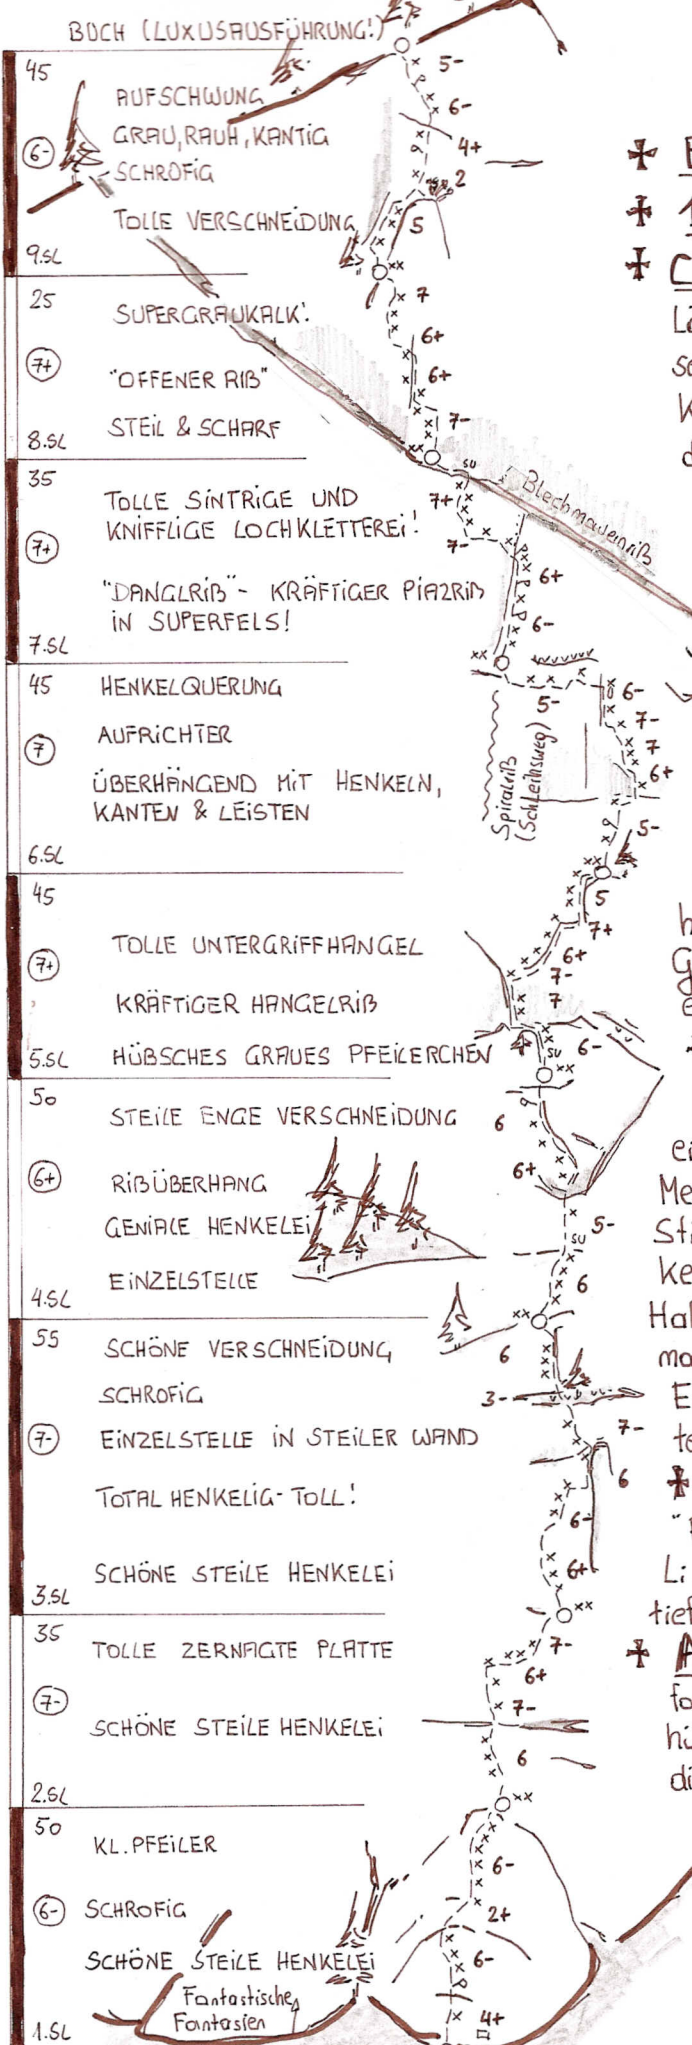 BUCH (LUXUSAUSFÜHRUNG!)
45
AUFSCHWUNG
GRAU, RAUH, KANTIG
6-
SCHROFIG
TOLLE VERSCHNEIDUNG
9.SL
5-
6-
4+
2
5
25
SUPERGRAUKALK!
7+
"OFFENER RIß"
STEIL & SCHARF
8.SL
7
6+
6+
7-
35
TOLLE SINTRIGE UND
KNIFFLIGE LOCHKLETTEREI!
7+
"DANGLRIß" - KRÄFTIGER PIAZRIß
IN SUPERFELS!
7.SL
SU
Blechmauernriß
7+
7-
6+
6-
45
HENKELQUERUNG
7
AUFRICHTER
ÜBERHÄNGEND MIT HENKELN,
KANTEN & LEISTEN
6.SL
5-
6-
7-
7
6+
5-
Spiralriß
(Schleihsweg)
45
7+
TOLLE UNTERGRIFFHANGEL
KRÄFTIGER HANGELRIß
5.SL
HÜBSCHES GRAUES PFEILERCHEN
5
7+
6+
7-
7
6-
SU
50
STEILE ENGE VERSCHNEIDUNG
6+
RIßÜBERHANG
GENIALE HENKELEI
EINZELSTELLE
4.SL
6
6+
5-
SU
6
55
SCHÖNE VERSCHNEIDUNG
SCHROFIG
7-
EINZELSTELLE IN STEILER WAND
TOTAL HENKELIG - TOLL!
SCHÖNE STEILE HENKELEI
3.SL
6
3-
7-
6
6-
6+
35
TOLLE ZERNAGTE PLATTE
7-
SCHÖNE STEILE HENKELEI
2.SL
7-
6+
7-
6
50
KL. PFEILER
6-
SCHROFIG
SCHÖNE STEILE HENKELEI
Fantastische
Fantasien
1.SL
6-
2+
6-
4+